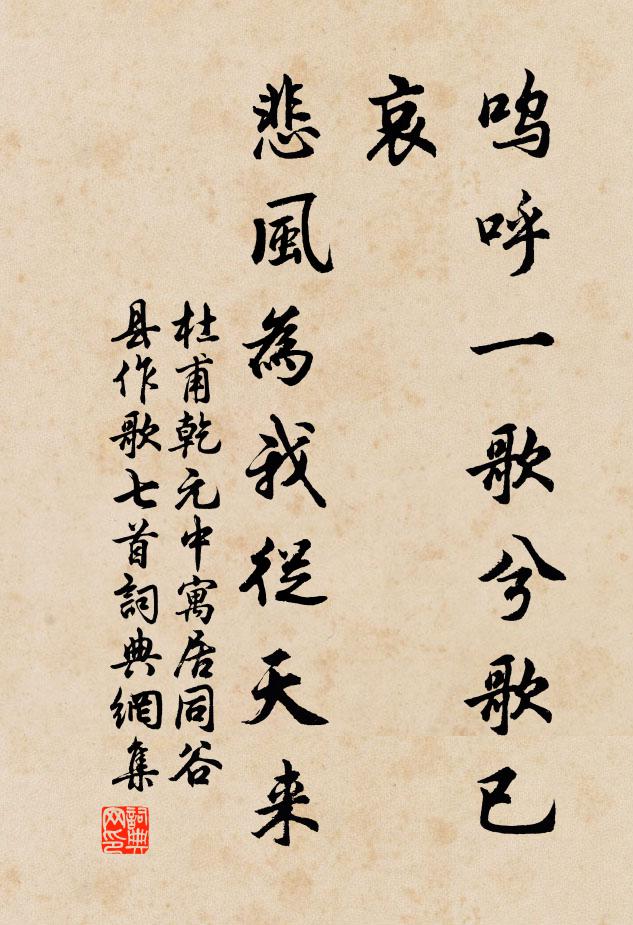 嗚呼一歌兮歌已
哀
悲風為我從天来
杜甫乾元中寓居同谷
县作歌七首詞典網集
詞典
网印